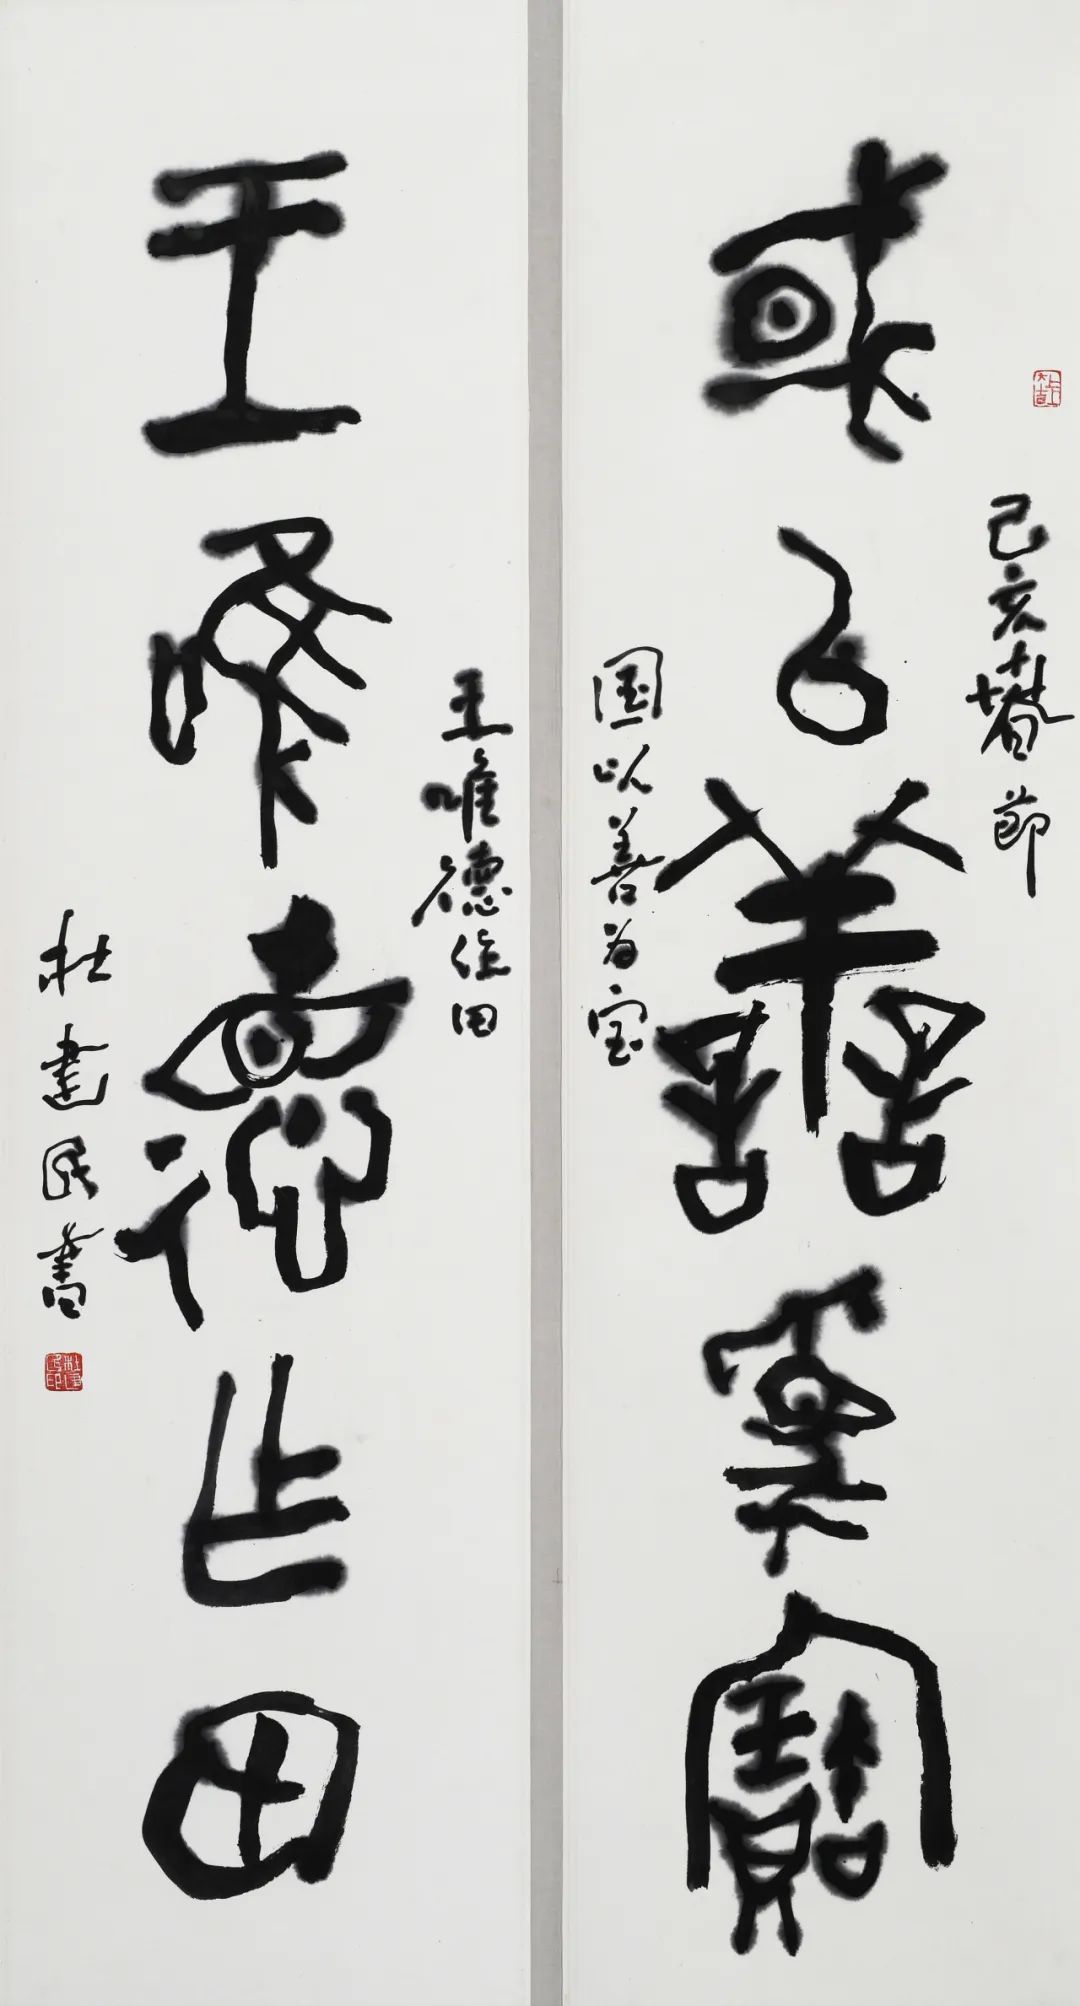 己亥萅節
或以譱為寶
国以善为宝
王唯德作田
王唯德乍田
杜建民書